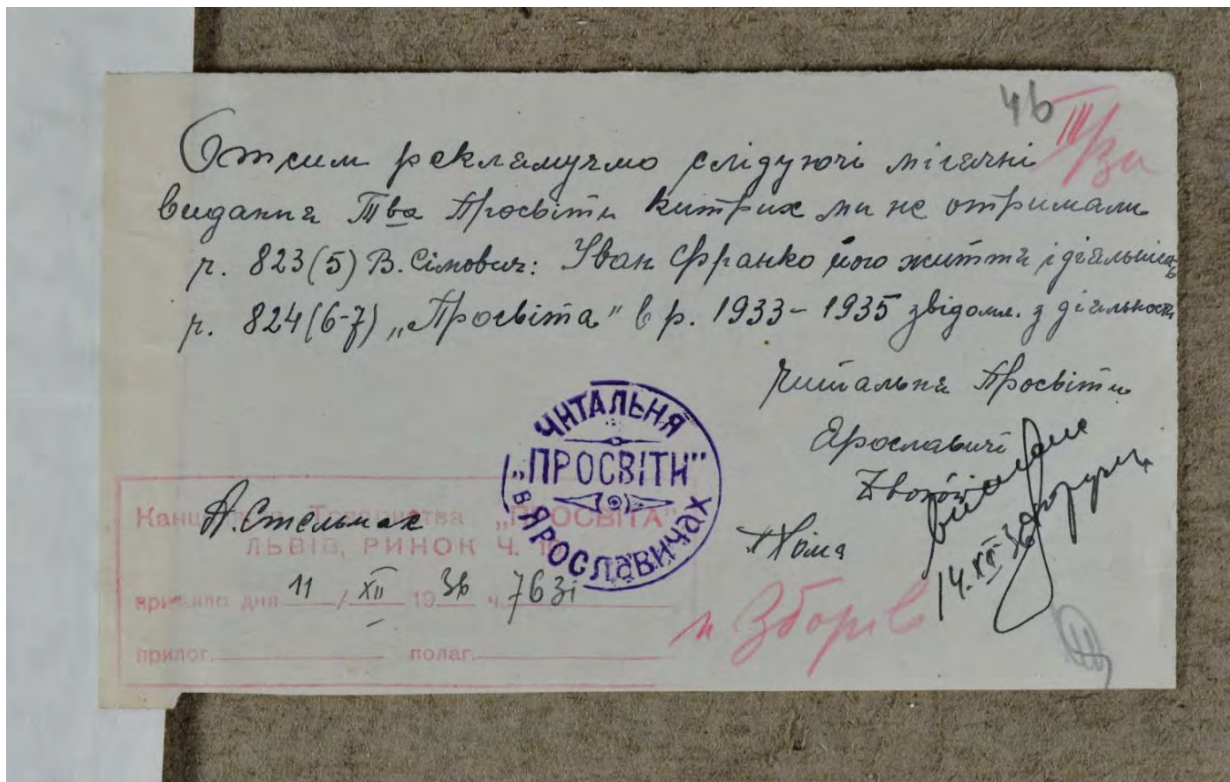 46
III/Зв
Отсим реклямуємо слідуючі місячні
видання Тва Просвіти котрих ми не отримали
ч. 823(5) В. Сімович: Іван Франко його життя і діяльність
ч. 824(6-7) „Просвіта" в р. 1933-1935 звідомл. з діяльности
Читальня Просвіти
Ярославичі
ЧИТАЛЬНЯ
„ПРОСВІТИ"
в ЯРОСЛАВИЧАХ
А. Стельмах
Хома
Канцелярія Товариства „ПРОСВІТА"
ЛЬВІВ, РИНОК Ч. 10
прийшло дня 11 / XII 1936 ч. 763і
прилог. полаг.
14.XII 36
п Зборів